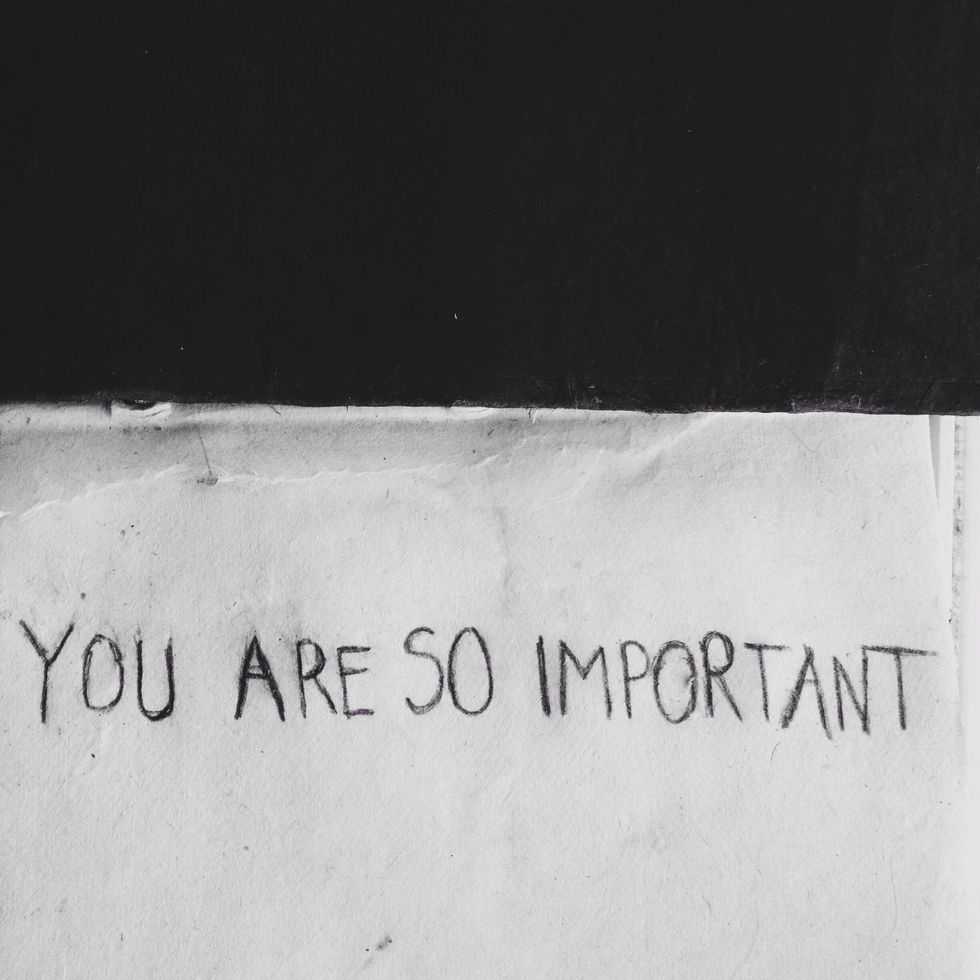 YOU ARE SO IMPORTANT